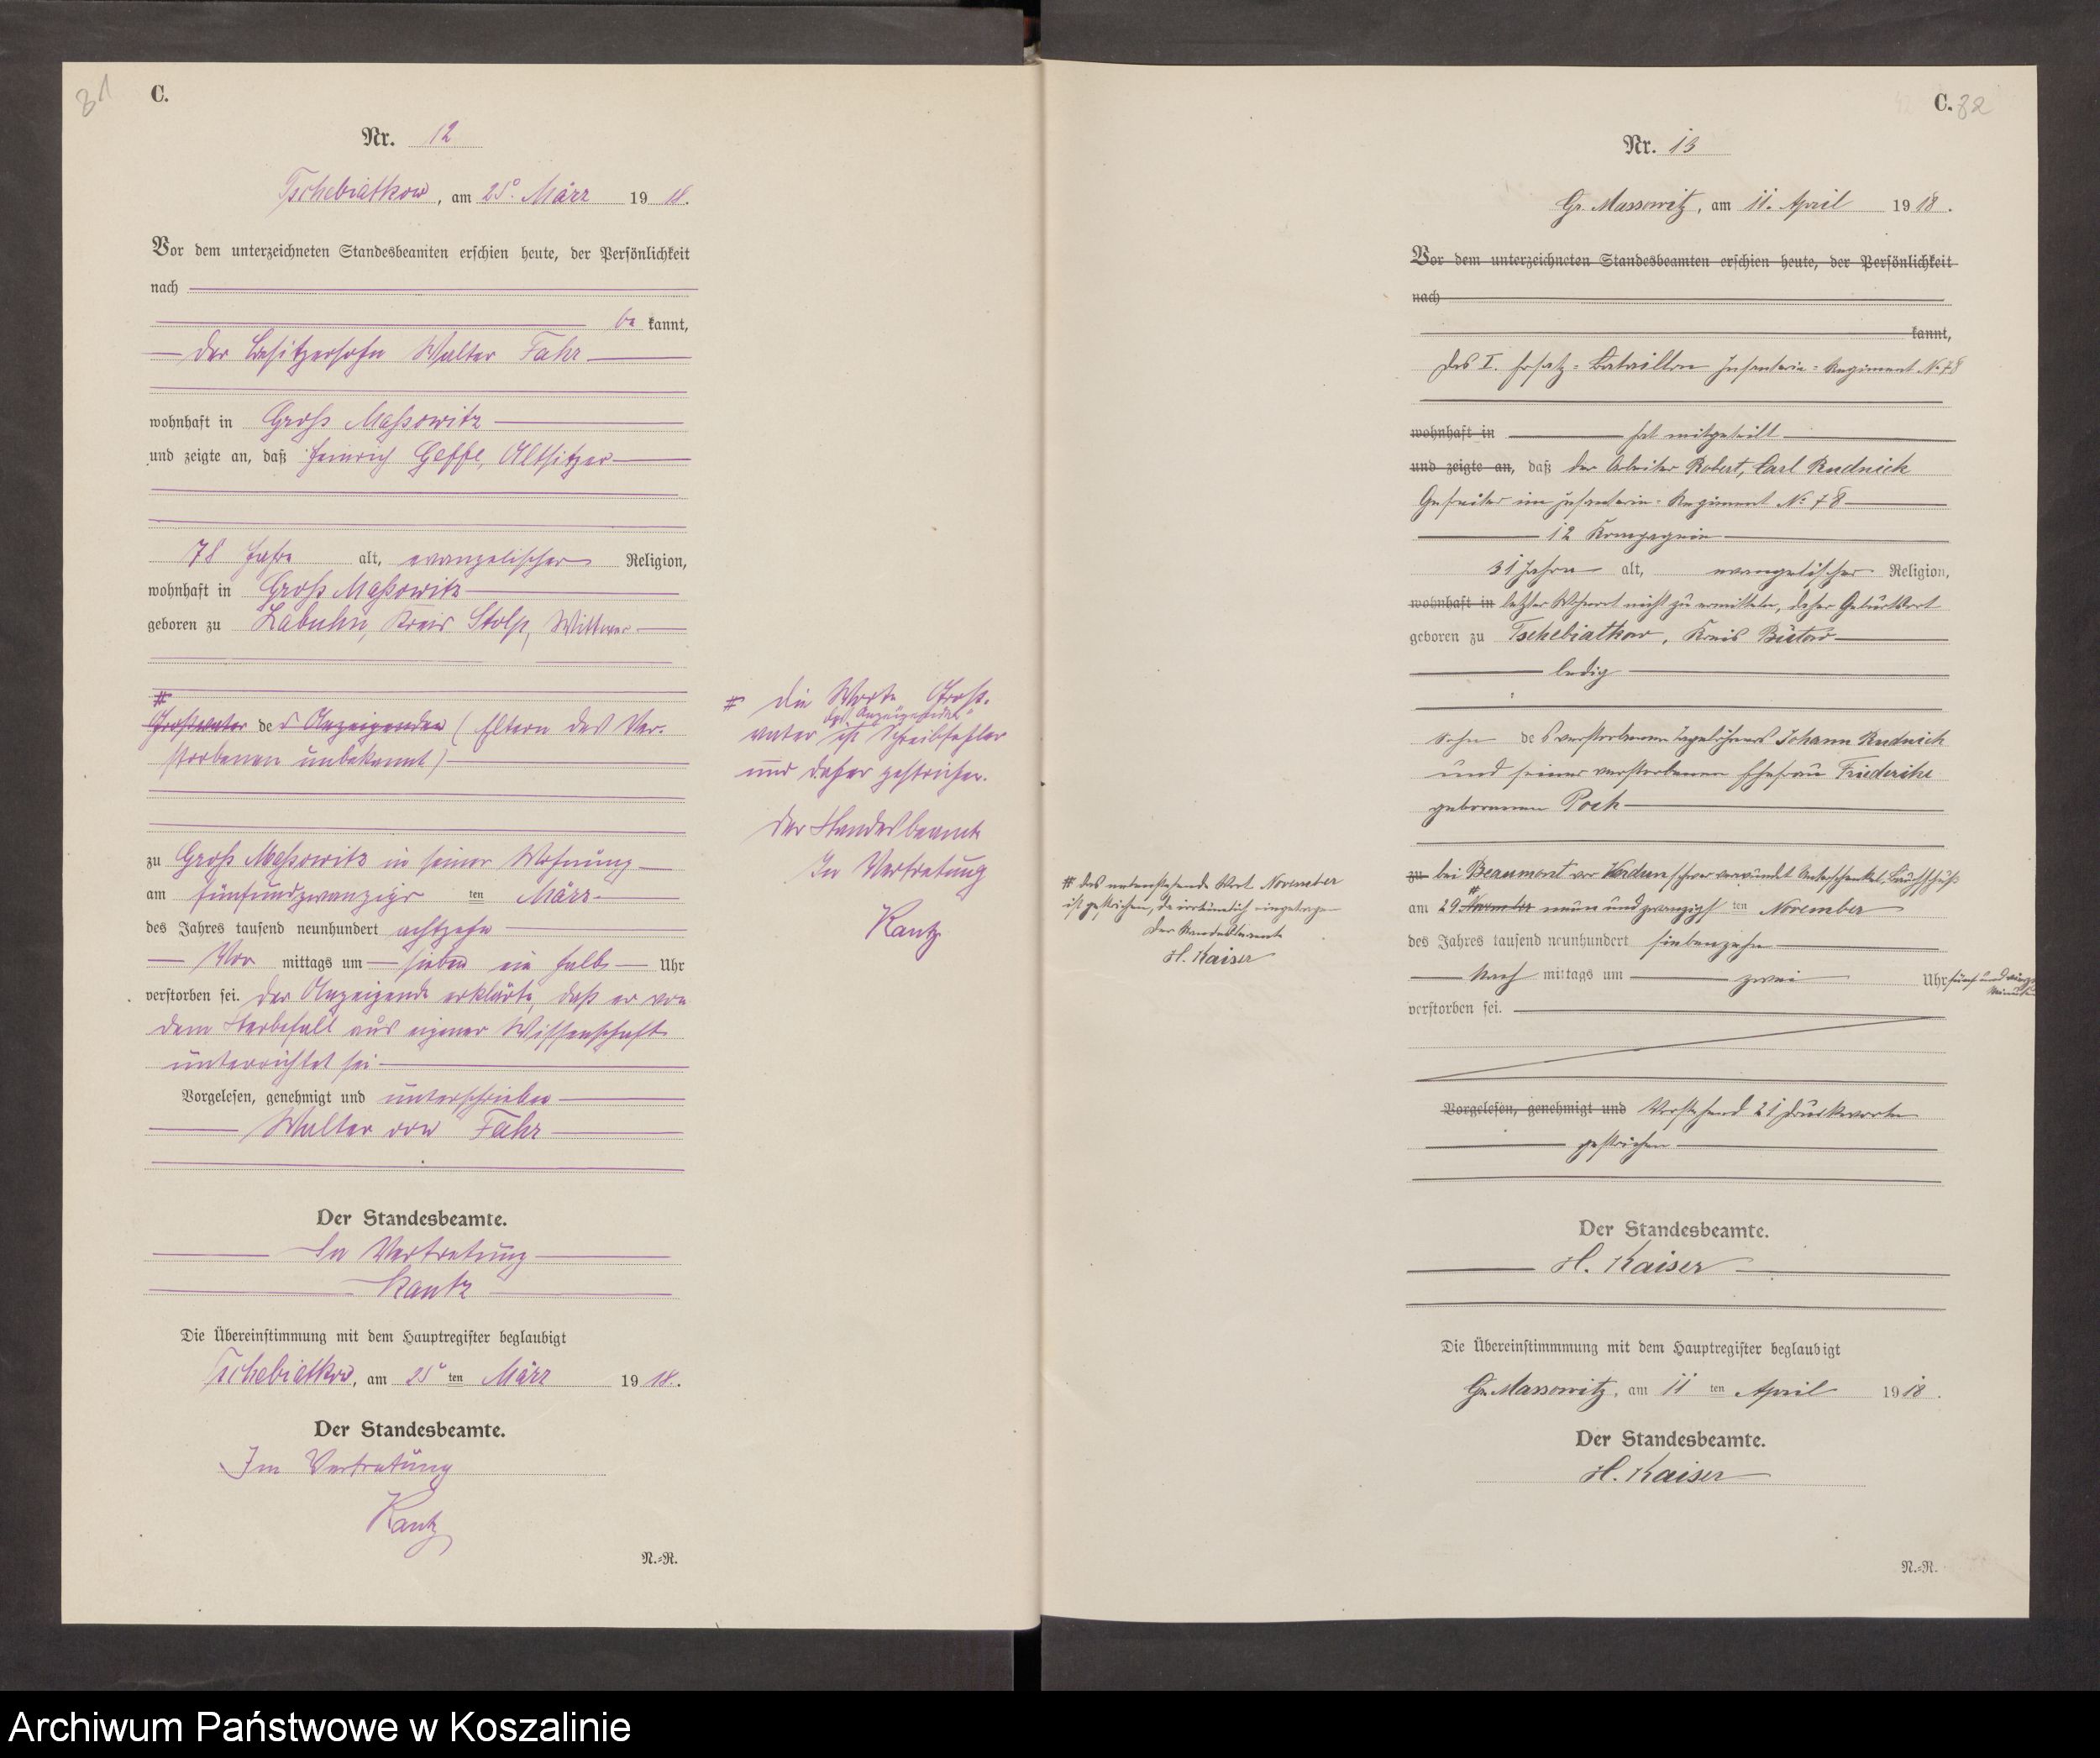 31
C.
Nr. 12
Tschebiatkow, am 25. März 1918.
Vor dem unterzeichneten Standesbeamten erschien heute, der Persönlichkeit
nach
be kannt,
der Besitzersohn Walter Fahr
wohnhaft in Groß Massowitz
und zeigte an, daß Heinrich Geffe, Altsitzer
78 Jahre alt, evangelischer Religion,
wohnhaft in Groß Massowitz
geboren zu Labuhn, Kreis Stolp, Wittwer
#
Großvater des Anzeigenden (Eltern des Ver-
storbenen unbekannt)
zu Groß Massowitz in seiner Wohnung
am fünfundzwanzigs ten März
des Jahres tausend neunhundert achtzehn
Vor mittags um sieben ein halb Uhr
verstorben sei. Der Anzeigende erklärte, daß er von
dem Sterbefall aus eigener Wissenschaft
unterrichtet sei
Vorgelesen, genehmigt und unterschrieben
Walter von Fahr
Der Standesbeamte.
In Vertretung
Kautz
Die Übereinstimmung mit dem Hauptregister beglaubigt
Tschebiatkow, am 25 ten März 1918.
Der Standesbeamte.
Im Vertretung
Kautz
N.-R.
# die Worte Groß-
vater des Anzeigenden ist Schreibfehler
und daher gestrichen.
Der Standesbeamte
In Vertretung
Kautz
C. 32
Nr. 13
Gr. Massowitz, am 11. April 1918.
Vor dem unterzeichneten Standesbeamten erschien heute, der Persönlichkeit
nach
kannt,
Das I. Ersatz-Bataillon Infanterie-Regiment No 78
wohnhaft in hat mitgeteilt
und zeigte an, daß der Arbeiter Robert, Carl Rudnick
Gefreiter im Infanterie-Regiment No 78
12 Kompagnie
31 Jahre alt, evangelischer Religion,
wohnhaft in letzter Wohnort nicht zu ermitteln, daher Geburtsort
geboren zu Tschebiatkow, Kreis Bütow
ledig
Sohn des verstorbenen Tagelöhners Johann Rudnick
und seiner verstorbenen Ehefrau Friederike
geborenen Poch
zu bei Beaumont vor Verdun schwer verwundet Unterschenkel, Bauchschuß
#
am 29 November neun und zwanzigs ten November
des Jahres tausend neunhundert siebenzehn
Nach mittags um zwei Uhr fünf und vierzig
Minuten
verstorben sei.
Vorgelesen, genehmigt und Vorstehend 21 Druckworte
gestrichen
Der Standesbeamte.
H. Kaiser
Die Übereinstimmung mit dem Hauptregister beglaubigt
Gr. Massowitz, am 11 ten April 1918.
Der Standesbeamte.
H. Kaiser
N.-R.
# das nebenstehende Wort November
ist gestrichen, da irrtümlich eingetragen
Der Standesbeamte
H. Kaiser
Archiwum Państwowe w Koszalinie